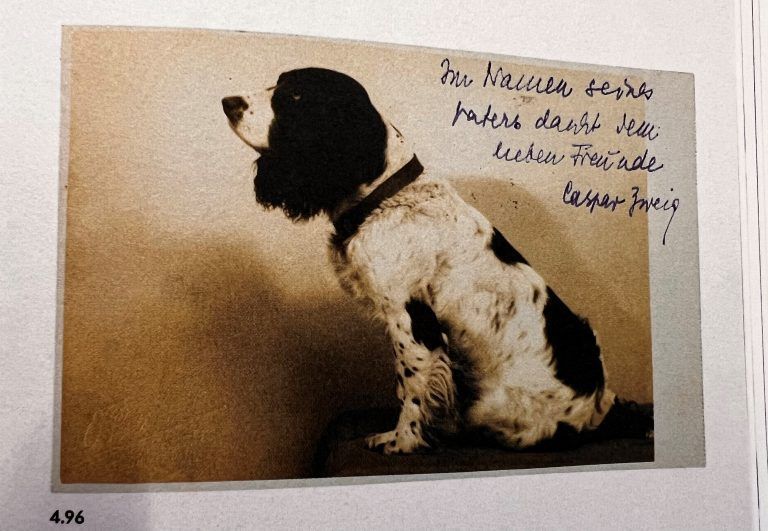 Im Namen seines
Vaters dankt dem
lieben Freunde
Caspar Zweig
4.96